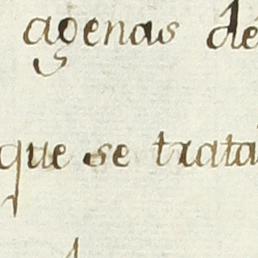 agenas de
que se trata